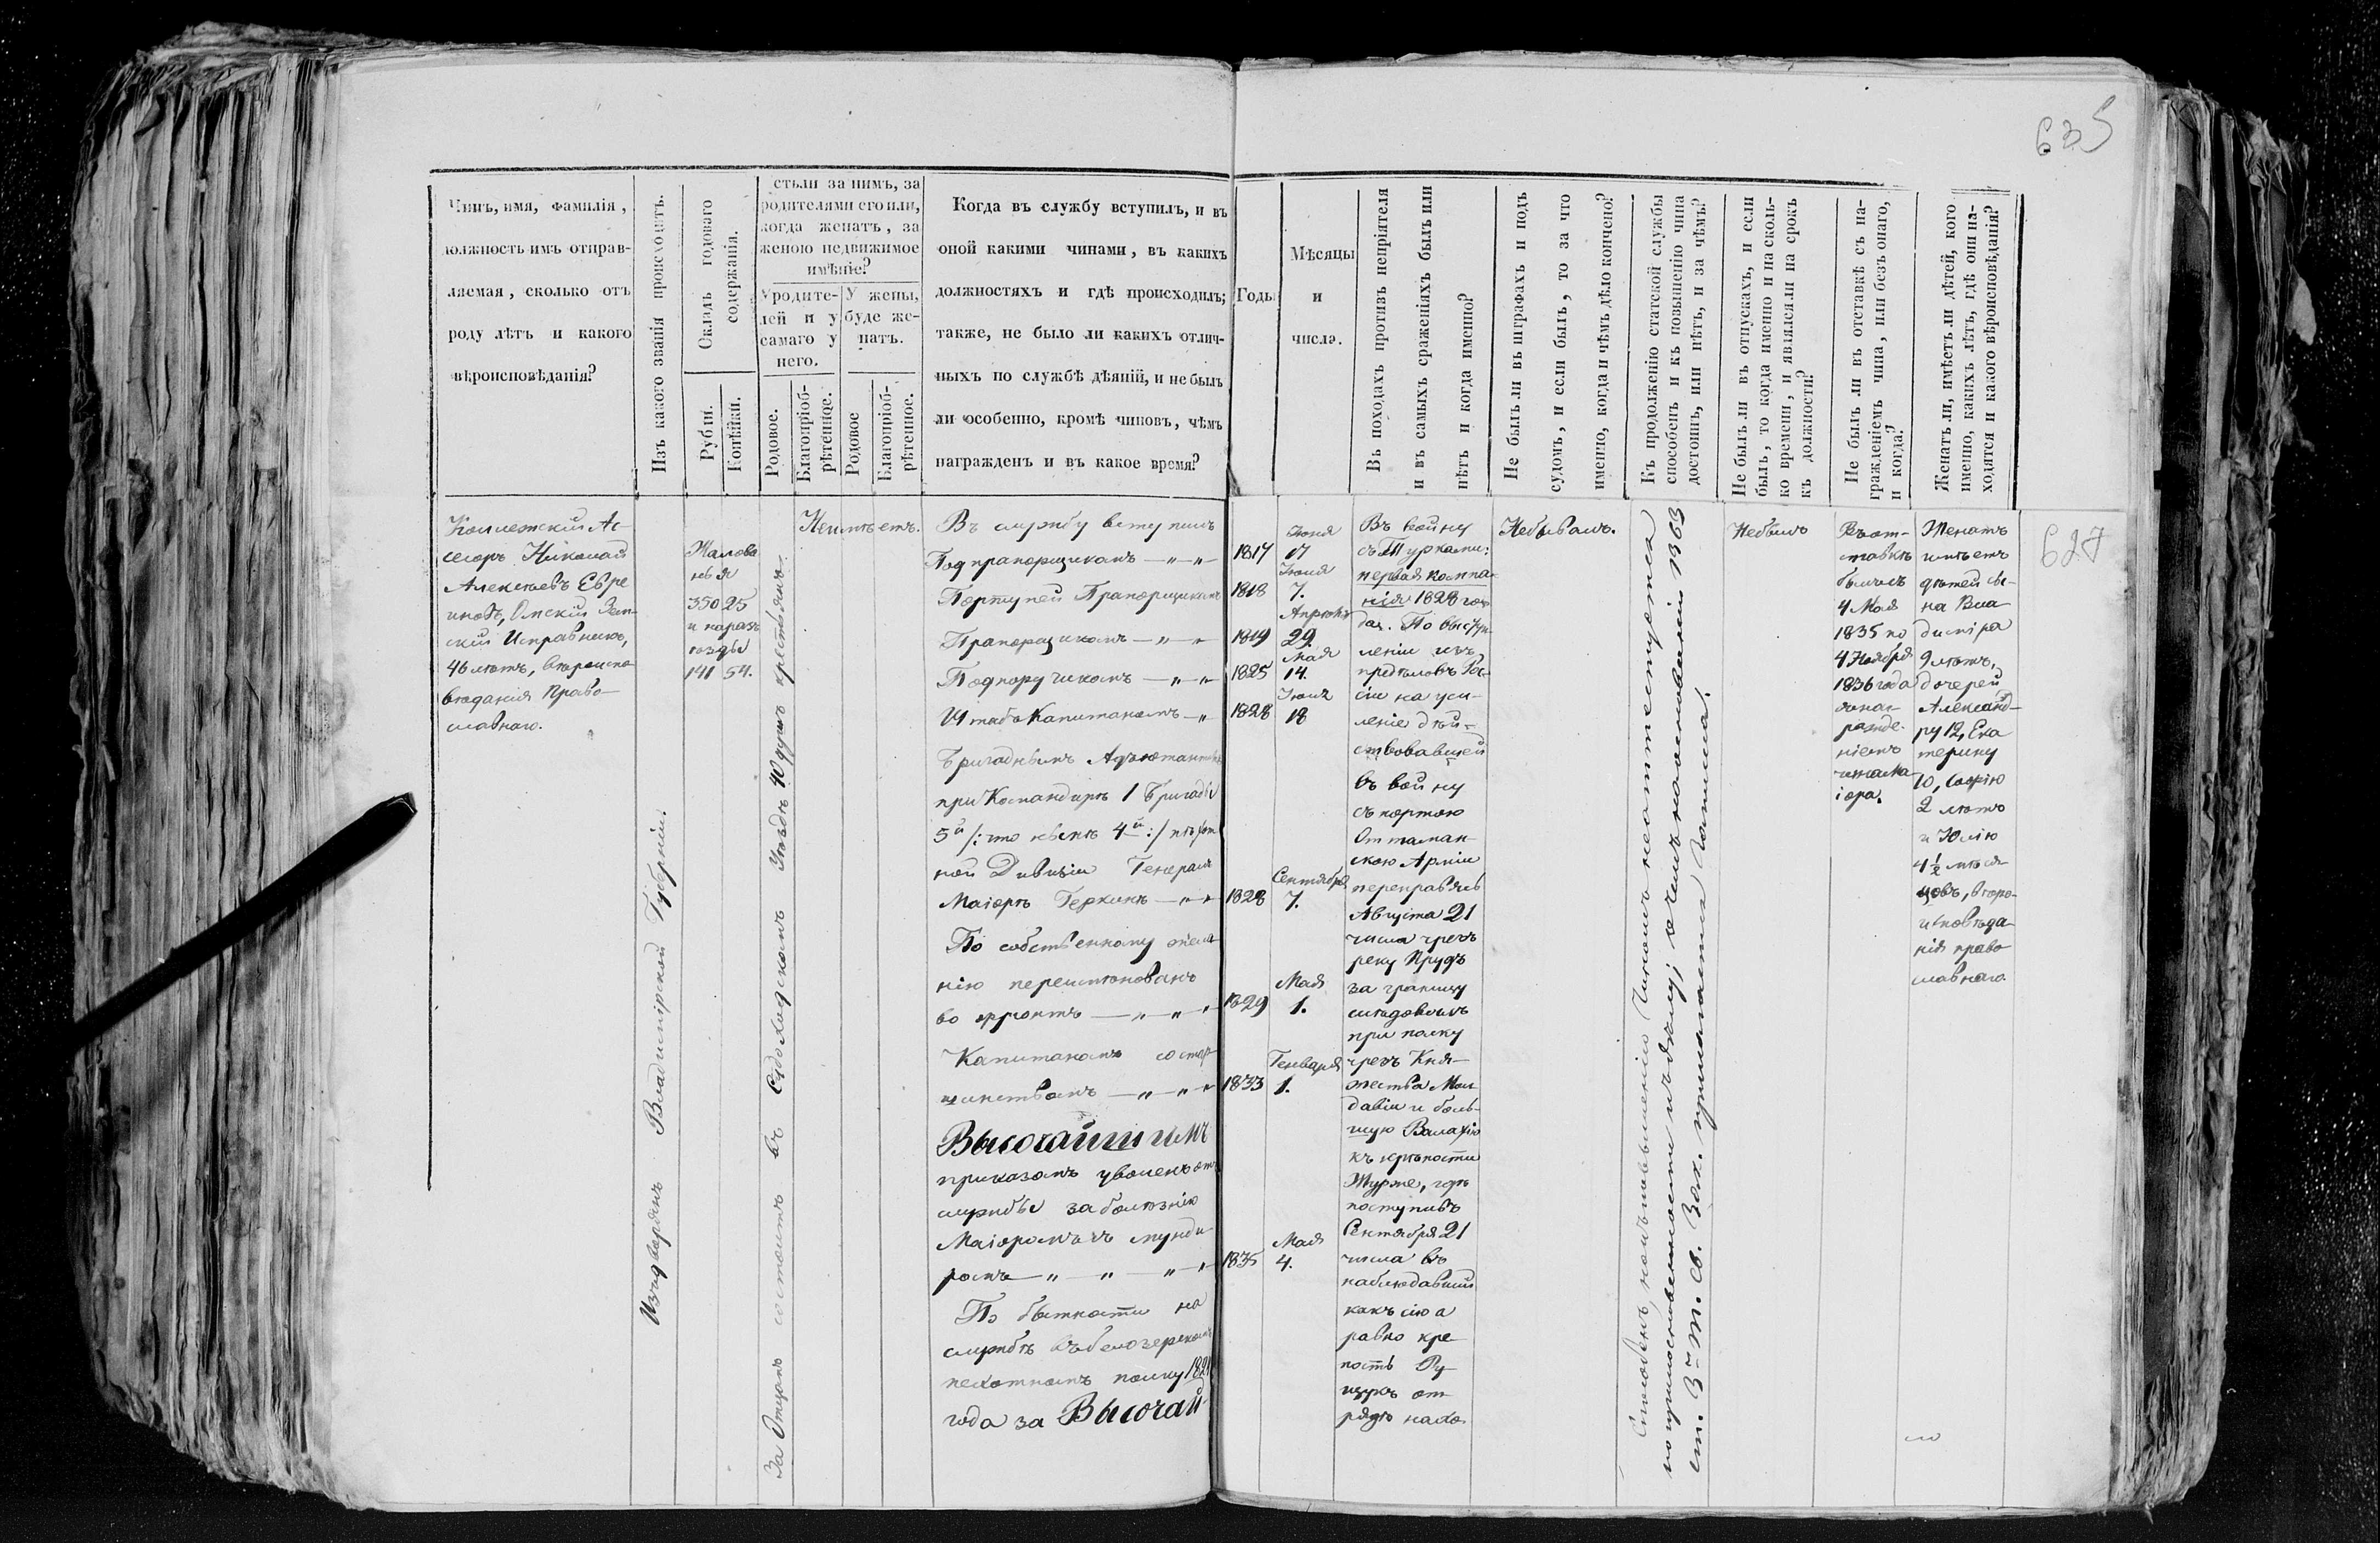 635
Чинъ, имя, фамилія,
должность имъ отправ-
ляемая, сколько отъ
роду лѣтъ и какого
вѣроисповѣданія?
Изъ какого званія происходитъ.
Окладъ годоваго
содержанія.
Рубли.
Копѣйки.
стьли за нимъ, за
родителями его или,
когда женатъ, за
женою недвижимое
имѣніе?
Уродите-
лей и у
самаго у
него.
У жены,
буде же-
натъ.
Родовое.
Благопріоб-
рѣтенное.
Родовое
Благопріоб-
рѣтенное.
Когда въ службу вступилъ, и въ
оной какими чинами, въ какихъ
должностяхъ и гдѣ происходилъ;
также, не было ли какихъ отлич-
ныхъ по службѣ дѣяній, и не былъ
ли особенно, кромѣ чиновъ, чѣмъ
награжденъ и въ какое время?
Годы
Мѣсяцы
и
числа.
Въ походахъ противъ непріятеля
и въ самыхъ сраженіяхъ былъ или
нѣтъ и когда именно?
Не былъ ли въ штрафахъ и подъ
судомъ, и если былъ, то за что
именно, когда и чѣмъ дѣло кончено?
Къ продолженію статской службы
способенъ и къ повышенію чина
достоинъ, или нѣтъ, и за чѣмъ?
Не былъ ли въ отпускахъ, и если
былъ, то когда именно и на сколь-
ко времени, и являлся ли на срокъ
къ должности?
Не былъ ли въ отставкѣ съ на-
гражденіемъ чина, или безъ онаго,
и когда?
Женатъ ли, имѣетъ ли дѣтей, кого
именно, какихъ лѣтъ, гдѣ они на-
ходятся и какого вѣроисповѣданія?
Коллежскій Ас-
сесоръ Николай
Алексѣевъ Евре
иновъ, Омскій Зем-
скій Исправникъ,
46 лѣтъ, вѣроиспо
вѣданія Право-
славнаго.
Изъ дворянъ Владимірской Губерніи.
Жалова
нья
350 25
и на разъ
ѣзды
141 54.
За Отцомъ состоитъ въ Судогодскомъ Уѣздѣ 40 душъ крестьянъ.
Неимѣетъ.
Въ службу вступилъ
Подпрапорщикомъ — „ — „
Портупей Прапорщикомъ
Прапорщикомъ — „ — „
Подпоручикомъ — „ — „
Штабс Капитаномъ — „
Бригаднымъ Адъютантомъ
при Командирѣ 1 Бригады
5й /: что нынѣ 4й :/ пѣхот
ной Дивизіи Генералъ
Маіорѣ Геркинѣ — „ — „
По собственному жела
нію переименованъ
во фронтъ — „ — „ — „
Капитаномъ со стар
шинствомъ — „ — „ — „
Высочайшимъ
приказомъ уволенъ отъ
службы за болѣзнію
Маіоромъ съ мунди
ромъ — „ — „ — „ — „
По бытности на
службѣ въ Белозерскомъ
пехотномъ полку 1821
года за Высочай-
1817
Іюня
17
1818
Іюня
7.
1819
Апрѣля
29.
1825
Мая
14.
1828
Іюня
18
1828
Сентября
7.
1829
Мая
1.
1833
Генваря
1.
1835
Мая
4.
Въ войну
съ Турками:
первая компа-
нія 1828 го-
да. По высту
пленіи изъ
предѣловъ Рос-
сіи на уси-
леніе дѣй-
ствовавшей
въ войну
съ портою
Оттоман-
скою Арміи
переправясь
Августа 21
числа чрезъ
реку Прудъ
за границу
слѣдовалъ
при полку
чрезъ Кня-
жества Мол
давіи и боль-
шую Валахію
къ крѣпости
Журже, гдѣ
поступивъ
Сентября 21
числа въ
наблюдавшій
какъ сію а
равно кре
пость Ру-
щукъ от-
рядъ нахо-
Небывалъ.
Способенъ, но къ повышенію Чиномъ не аттестуется
ст. 3го т. Св. Зак. Чиномъ.
Небылъ
Въ от-
ставкѣ
былъ съ
4 Мая
1835 по
4 Ноября
1836 года
съ наг-
ражде-
ніемъ
чина Ма-
іора.
Женатъ
имѣетъ
дѣтей сы-
на Вла
диміра
9 лѣтъ,
дочерей
Александ-
ру 12, Ека
терину
10, Софію
2 лѣтъ
и Юлію
4 1/2 мѣся-
цовъ, вѣро-
исповѣда-
нія право
славнаго
627